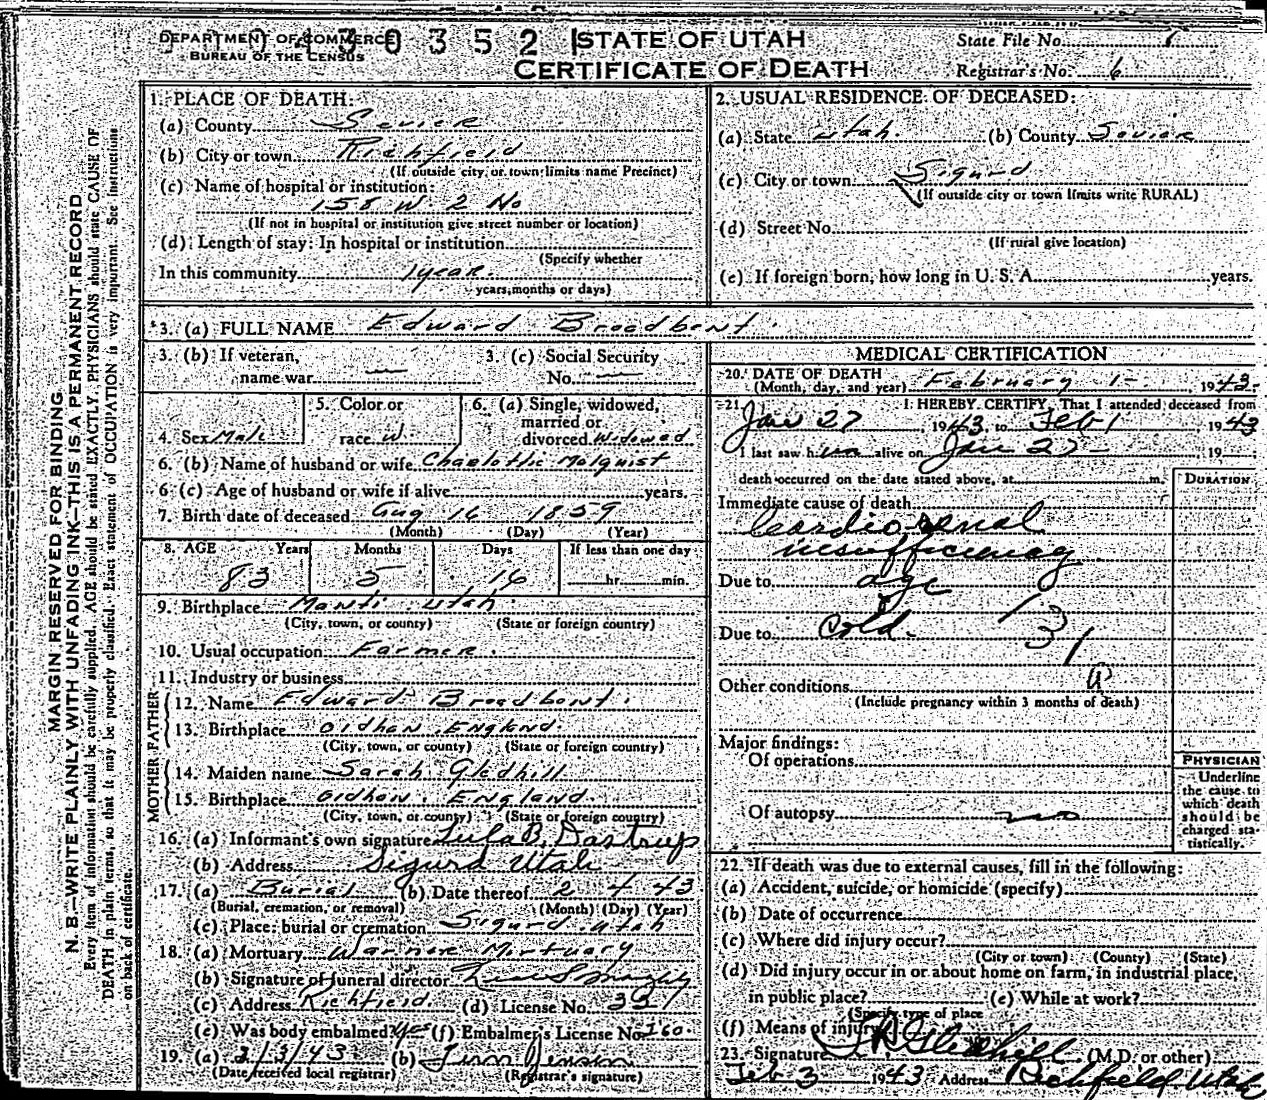 DEPARTMENT OF COMMERCE
BUREAU OF THE CENSUS
430352
STATE OF UTAH
CERTIFICATE OF DEATH
State File No.
Registrar's No. 6
MARGIN RESERVED FOR BINDING
N. B.—WRITE PLAINLY WITH UNFADING INK—THIS IS A PERMANENT RECORD
Every item of information should be carefully supplied. AGE should be stated EXACTLY. PHYSICIANS should state CAUSE OF
DEATH in plain terms, so that it may be properly classified. Exact statement of OCCUPATION is very important. See instructions
on back of certificate.
1. PLACE OF DEATH:
(a) County Sevier
(b) City or town Richfield
(If outside city or town limits name Precinct)
(c) Name of hospital or institution:
158 W. 2 No
(If not in hospital or institution give street number or location)
(d) Length of stay: In hospital or institution
(Specify whether
In this community 1 year
years, months or days)
2. USUAL RESIDENCE OF DECEASED:
(a) State Utah (b) County Sevier
(c) City or town Sigurd
(If outside city or town limits write RURAL)
(d) Street No.
(If rural give location)
(e) If foreign born, how long in U. S. A. years.
3. (a) FULL NAME Edward Broadbent
3. (b) If veteran,
name war —
3. (c) Social Security
No. —
4. Sex Male
5. Color or
race W.
6. (a) Single, widowed,
married or
divorced Widowed
6. (b) Name of husband or wife Charlottie Molquist
6 (c) Age of husband or wife if alive years.
7. Birth date of deceased Aug 16 1859
(Month) (Day) (Year)
8. AGE Years Months Days If less than one day
83 5 16 hr. min.
9. Birthplace Manti Utah
(City, town, or county) (State or foreign country)
10. Usual occupation Farmer.
11. Industry or business
FATHER
12. Name Edward Broadbent
13. Birthplace Oldham, England
(City, town, or county) (State or foreign country)
MOTHER
14. Maiden name Sarah Gledhill
15. Birthplace Oldham, England
(City, town, or county) (State or foreign country)
16. (a) Informant's own signature Lula B. Dastrup
(b) Address Sigurd Utah
17. (a) Burial (b) Date thereof 2 4 43
(Burial, cremation, or removal) (Month) (Day) (Year)
(c) Place: burial or cremation Sigurd Utah
18. (a) Mortuary Warnor Mortuary
(b) Signature of funeral director
(c) Address Richfield (d) License No. 337
(e) Was body embalmed? yes (f) Embalmer's License No. 160.
19. (a) 2/3/43 (b) Jensen
(Date received local registrar) (Registrar's signature)
MEDICAL CERTIFICATION
20. DATE OF DEATH
(Month, day, and year) February 1-, 1943.
21. I HEREBY CERTIFY, That I attended deceased from
Jan 27, 1943, to Feb 1 1943
I last saw him alive on Jan 27 - 19
death occurred on the date stated above, at m.
DURATION
Immediate cause of death
Cardio-renal
insufficiency
Due to age
Due to cold.
131
a
Other conditions
(Include pregnancy within 3 months of death)
Major findings:
Of operations
Of autopsy no
PHYSICIAN
Underline
the cause to
which death
should be
charged sta-
tistically.
22. If death was due to external causes, fill in the following:
(a) Accident, suicide, or homicide (specify)
(b) Date of occurrence
(c) Where did injury occur?
(City or town) (County) (State)
(d) Did injury occur in or about home on farm, in industrial place,
in public place? (e) While at work?
(Specify type of place
(f) Means of injury
23. Signature Gledhill (M.D. or other)
Feb 3 1943 Address Richfield Utah